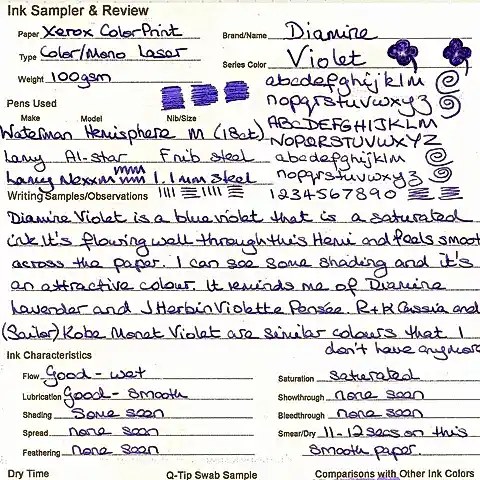 Ink Sampler & Review
Paper Xerox ColorPrint
Brand/Name/ Diamine
Type Color/Mono Laser
Series Color Violet
Weight 100gsm
abcdefghijklm
nopqrstuvwxyz
Pens Used
Make Model Nib/Size
ABCDEFGHIJKLM
NOPQRSTUVWXYZ
Waterman Hemisphere M (18ct)
Lamy Al-star F nib steel
abcdefghijklm
nopqrstuvwxyz
Lamy Nexx M 1.1mm steel
1234567890
Writing Samples/Observations
Diamine Violet is a blue violet that is a saturated
ink. It's flowing well through this Hemi and feels smoot
across the paper. I can see some shading and it's
an attractive colour. It reminds me of Diamine
Lavender and J Herbin Violette Pensée. R+K Cassia and
(Sailor) Kobe Monet Violet are similar colours that I
don't have anymore
Ink Characteristics
Flow Good - wet
Saturation saturated
Lubrication Good - smooth
Showthrough none seen
Shading Some seen
Bleedthrough none seen
Spread none seen
Smear/Dry 11-12 secs on this
smooth paper.
Feathering none seen
Dry Time
Q-Tip Swab Sample
Comparisons with Other Ink Colors